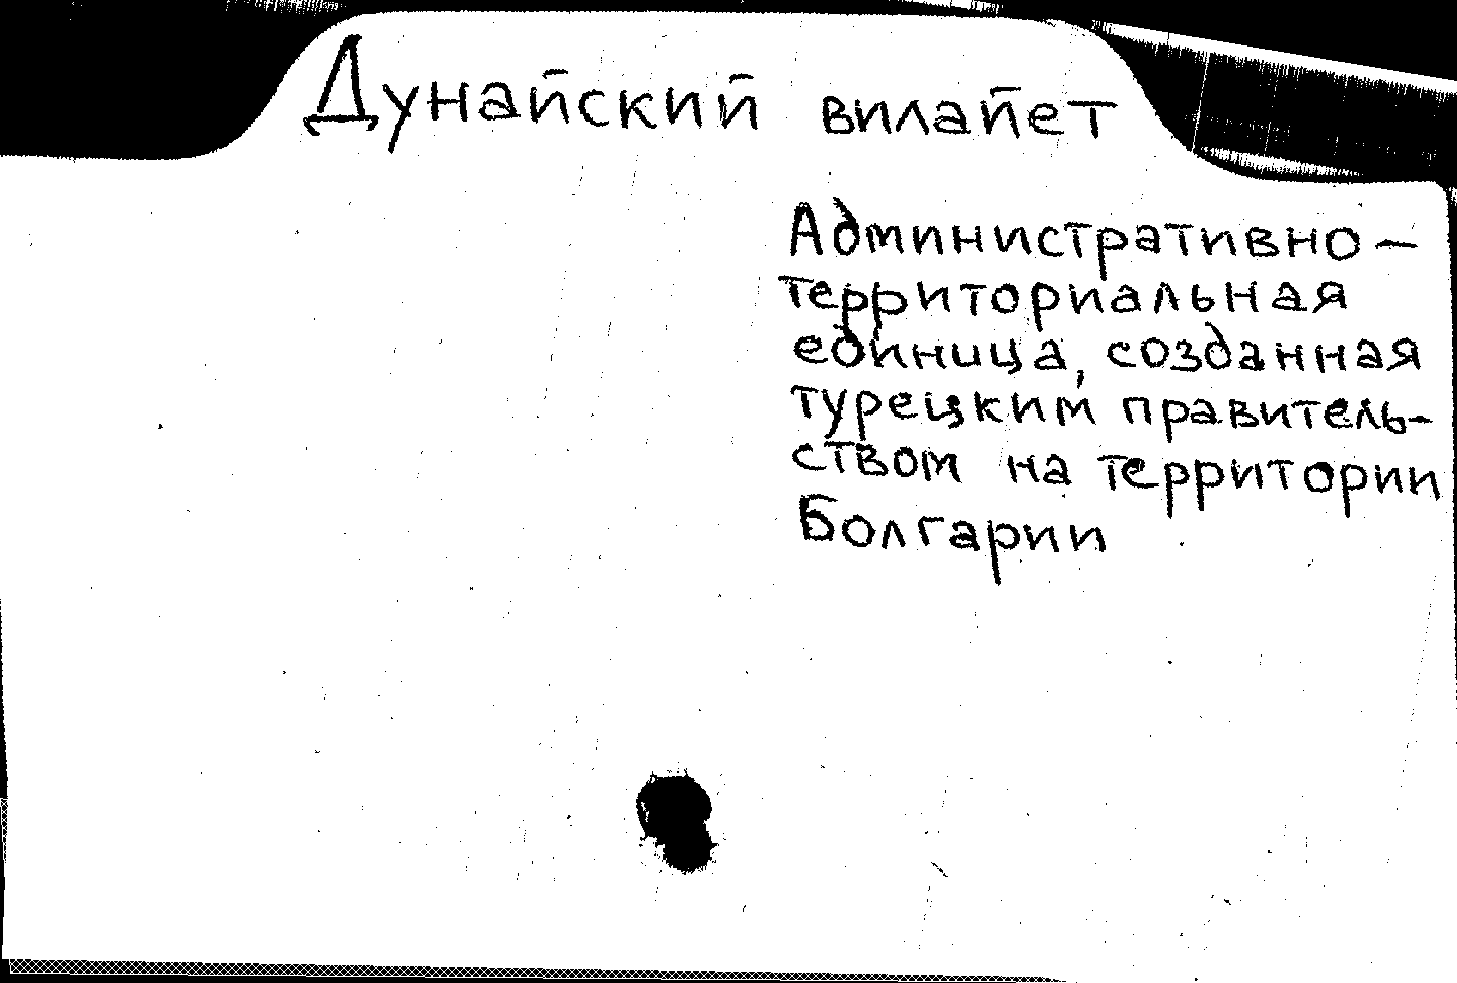 Дунайский вилайет
Административно-
территориальная
единица, созданная
турецким правитель-
ством на территории
Болгарии